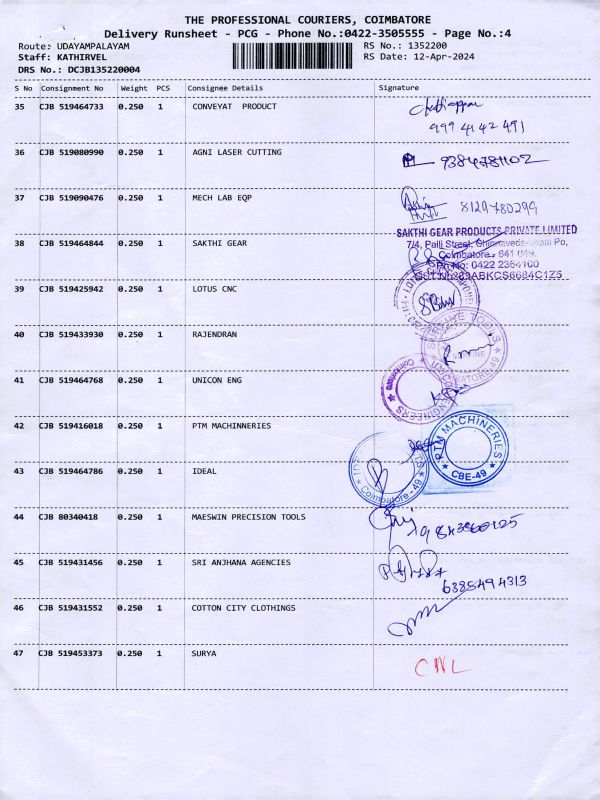 THE PROFESSIONAL COURIERS, COIMBATORE
Delivery Runsheet - PCG - Phone No.:0422-3505555 - Page No.:4
Route: UDAYAMPALAYAM
RS No.: 1352200
Staff: KATHIRVEL
RS Date: 12-Apr-2024
DRS No.: DCJB135220004
S No Consignment No Weight PCS Consignee Details Signature
35 CJB 519464733 0.250 1 CONVEYAT PRODUCT
999 41 42 491
36 CJB 519080990 0.250 1 AGNI LASER CUTTING 9384781102
37 CJB 519090476 0.250 1 MECH LAB EQP 8129780299
SAKTHI GEAR PRODUCTS PRIVATE LIMITED
38 CJB 519464844 0.250 1 SAKTHI GEAR
7/4, Palli Street, Po,
Coimbatore - 641 049.
Ph No: 0422 2364100
39 CJB 519425942 0.250 1 LOTUS CNC
40 CJB 519433930 0.250 1 RAJENDRAN
41 CJB 519464768 0.250 1 UNICON ENG
UNICON ENGINEERS
42 CJB 519416018 0.250 1 PTM MACHINNERIES
PTM MACHINERIES
CBE-49
43 CJB 519464786 0.250 1 IDEAL
Coimbatore - 49
44 CJB 80340418 0.250 1 MAESWIN PRECISION TOOLS
45 CJB 519431456 0.250 1 SRI ANJHANA AGENCIES
6385494313
46 CJB 519431552 0.250 1 COTTON CITY CLOTHINGS
47 CJB 519453373 0.250 1 SURYA
CNL